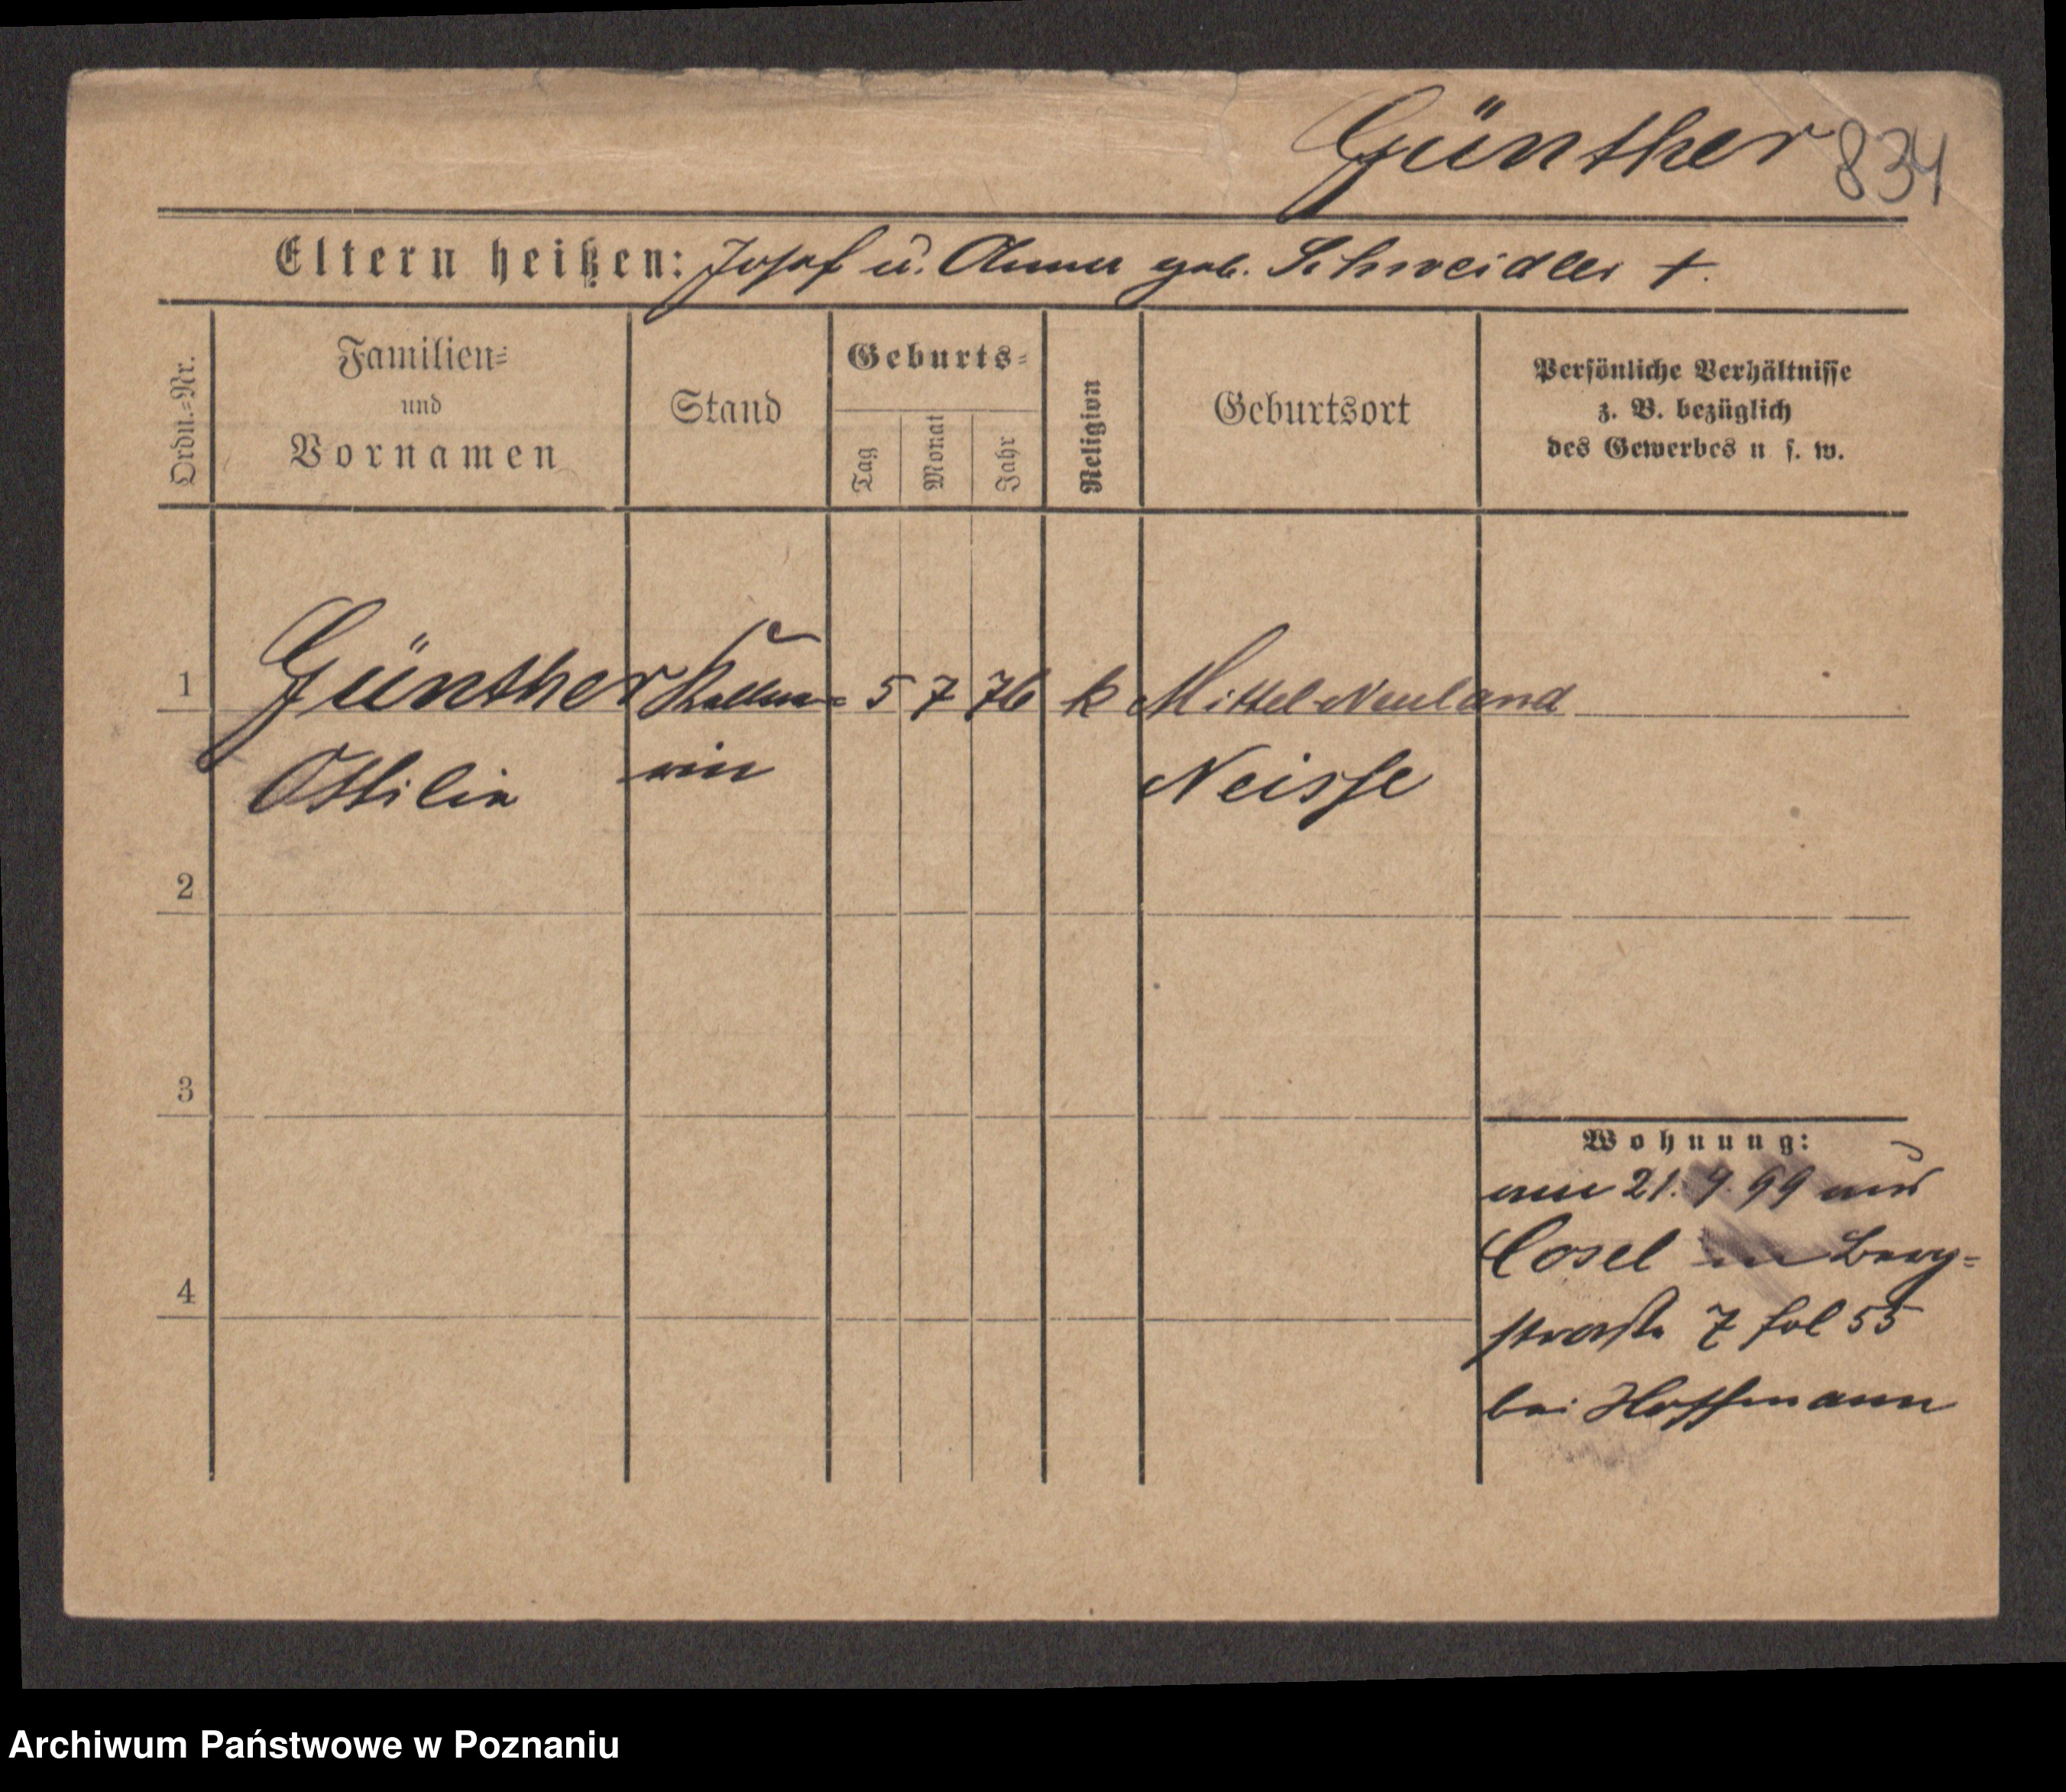 Günther 834
Eltern heißen: Josef u. Anna geb. Schneidler †.
Ordn.=Nr.
Familien=
und
Vornamen
Stand
Geburts=
Tag
Monat
Jahr
Religion
Geburtsort
Persönliche Verhältnisse
z. B. bezüglich
des Gewerbes u s. w.
1 Günther Kellne= 5 7 76 k Mittel-Neuland
Ottilie rin Neisse
2
3
4
Wohnung:
am 21. 9. 99 aus
Cosel in Berg=
straße 7 fol 55
bei Hoffmann
Archiwum Państwowe w Poznaniu